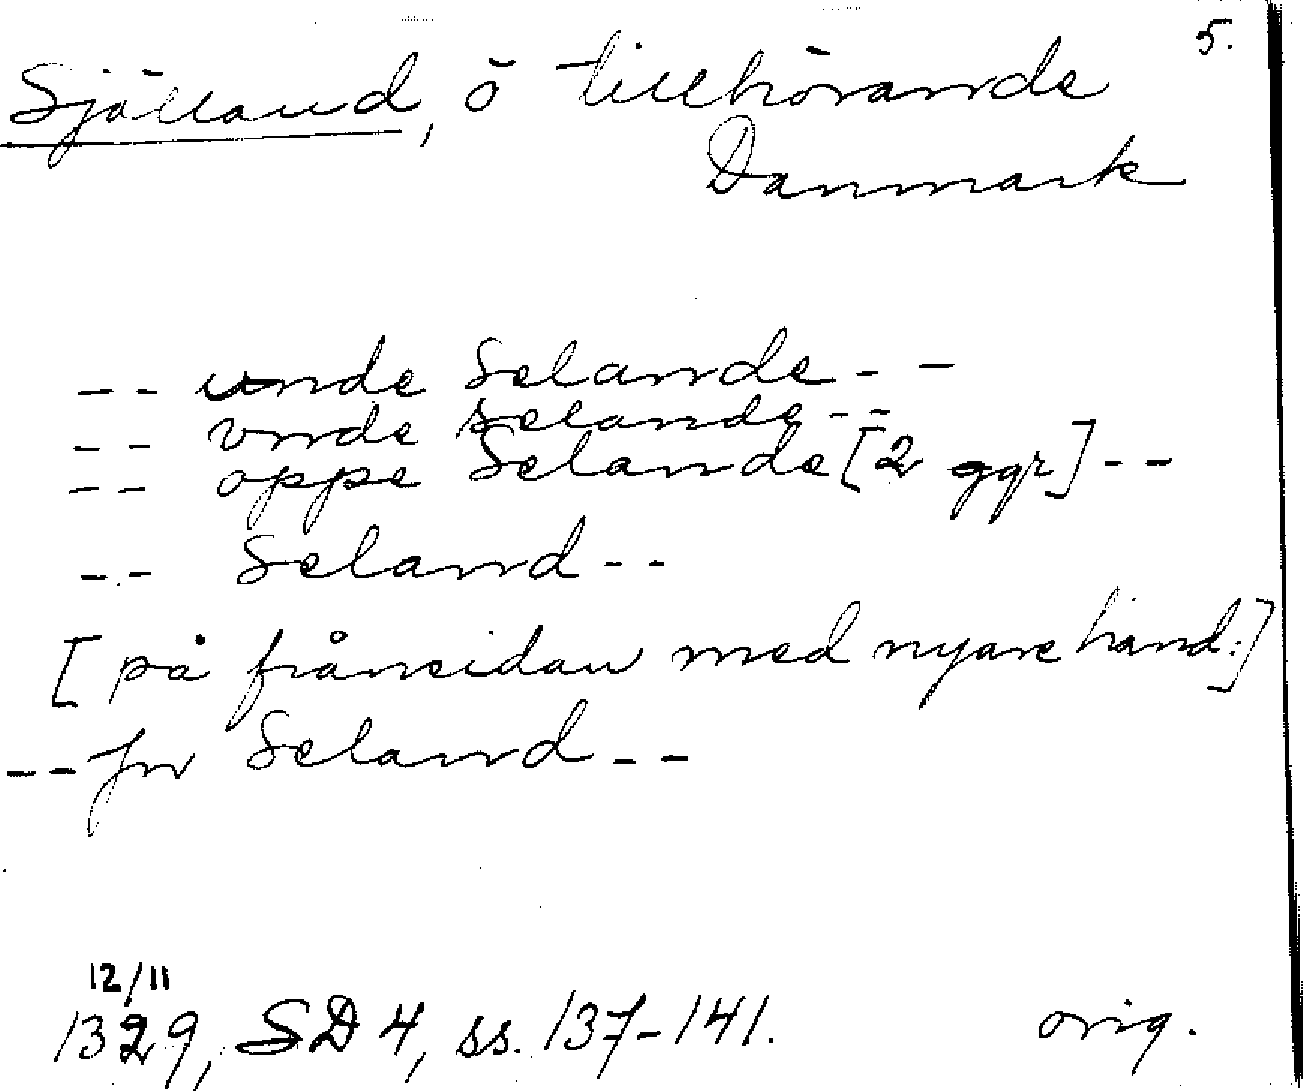 5.
Själland, ö tillhörande
Danmark
-- unde Selande --
-- vnde selande --
-- oppe Selande [2 ggr] --
-- Seland --
[på frånsidan med nyare hand:]
-- fn Seland --
12/11
1329, SD 4, ss. 137-141. orig.